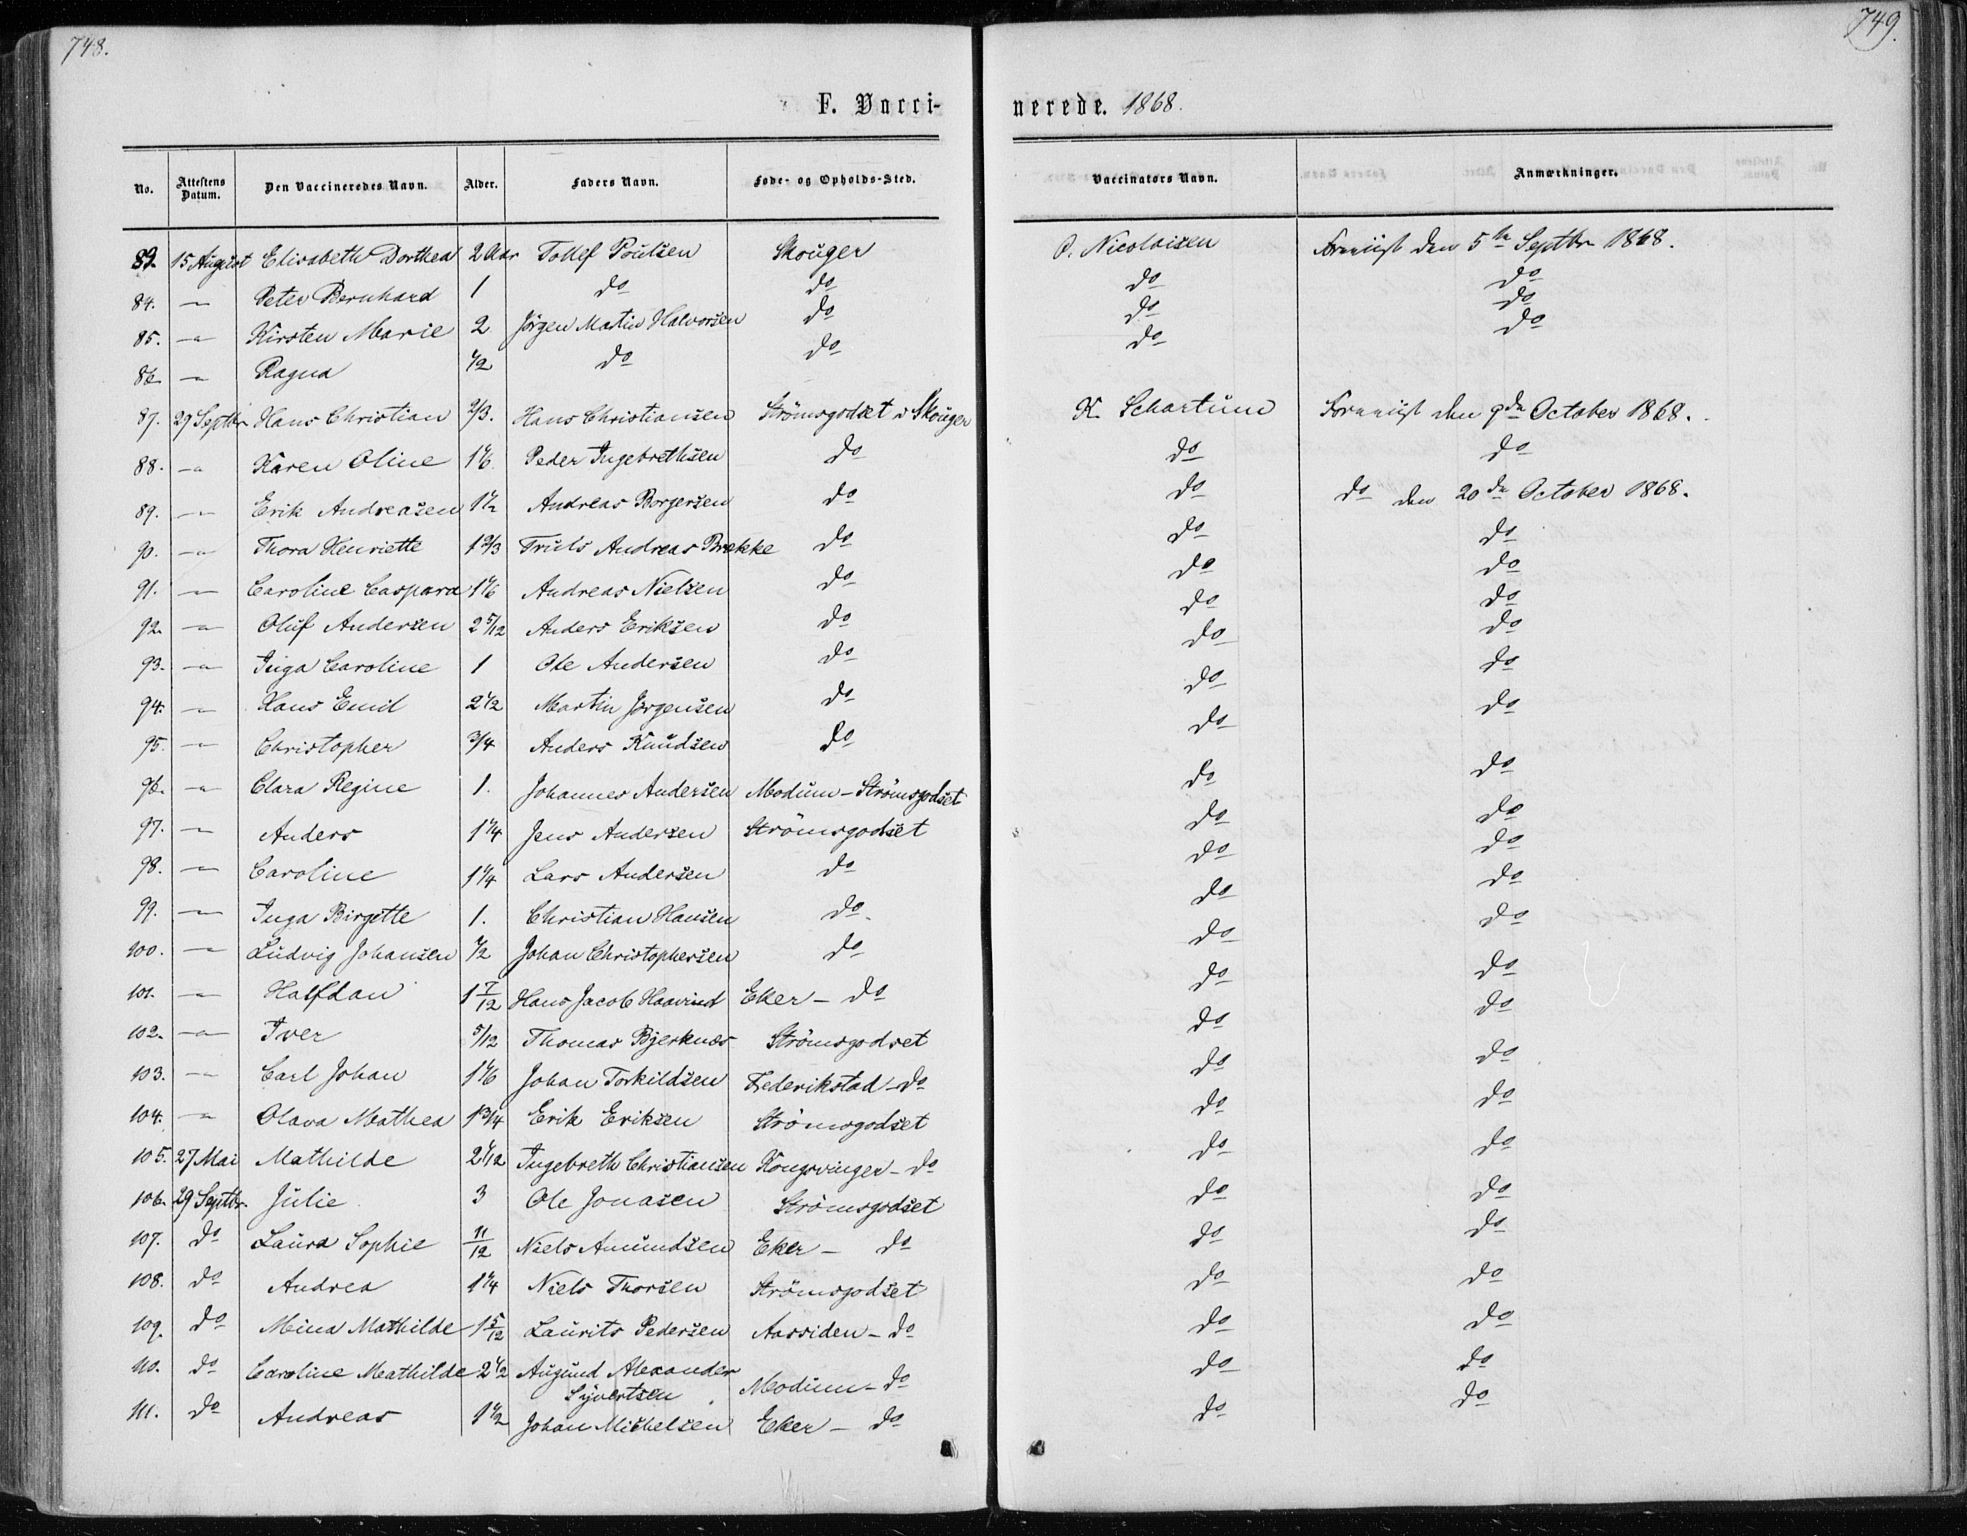 748.
749.
F. Vacci-
nerede. 1868.
No. Attestens Datum. Den Vaccineredes Navn. Alder. Faders Navn. Føde- og Opholds-Sted. Vaccinators Navn. Anmærkninger.
83. 15 August Elisabeth Dorthea 2 Aar Tollef Poulsen Skouger O. Nicolaisen den 5te Septbr 1868.
84. — Peter Bernhard 1 do do do do
85. — Kirsten Marie 2 Jörgen Martin Halvorsen do do do
86. — Ragna 1/2 do do do do
87. 29 Septbr Hans Christian 2/3. Hans Christiansen Strömsgodset i Skouger K. Schartum den 9de October 1868.
88. — Karen Oline 1 1/6. Peder Ingebrethsen do do do
89. — Erik Andreasen 1 1/2 Andreas Borgersen do do do den 20de October 1868.
90. — Thora Henriette 1 2/3 Truls Andreas Brekke do do do
91. — Caroline Caspara 1 1/6 Andreas Nielsen do do do
92. — Oluf Andersen 2 5/12 Anders Eriksen do do do
93. — Inga Caroline 1 Ole Andersen do do do
94. — Hans Emil 2 1/2 Martin Jørgensen do do do
95. — Christopher 3/4 Anders Knudsen do do do
96. — Clara Regine 1. Johannes Andersen Modum - Strömsgodset do do
97. — Anders 1 1/4 Jens Andersen Strömsgodset do do
98. — Caroline 1 1/4 Lars Andersen do do do
99. — Inga Birgitte 1. Christian Hansen do do do
100. — Ludvig Johansen 1/2 Johan Christophersen do do do
101. — Halfdan 1 7/12 Hans Jacob Haavind Eker - do do do
102. — Iver 5/12 Thomas Bjerknæs Strömsgodset do do
103. — Carl Johan 1 1/6 Johan Torkildsen Frederikstad - do do do
104. — Olava Mathea 1 3/4 Erik Eriksen Strömsgodset do do
105. 27 Mai Mathilde 2 1/12 Ingebreth Christiansen Kongsvinger - do do do
106. 29 Septbr. Julie 3 Ole Jonasen Strömsgodset do do
107. do Laura Sophie 11/12 Niels Amundsen Eker - do do do
108. do Andrea 1 1/4 Niels Thorsen Strömsgodset do do
109. do Mina Mathilde 1 5/12 Laurits Pedersen Aassiden - do do do
110. do Caroline Mathilde 2 1/2 Augund Alexander Syvertsen Modum - do do do
111. do Andreas 1 1/2 Johan Michelsen Eker - do do do